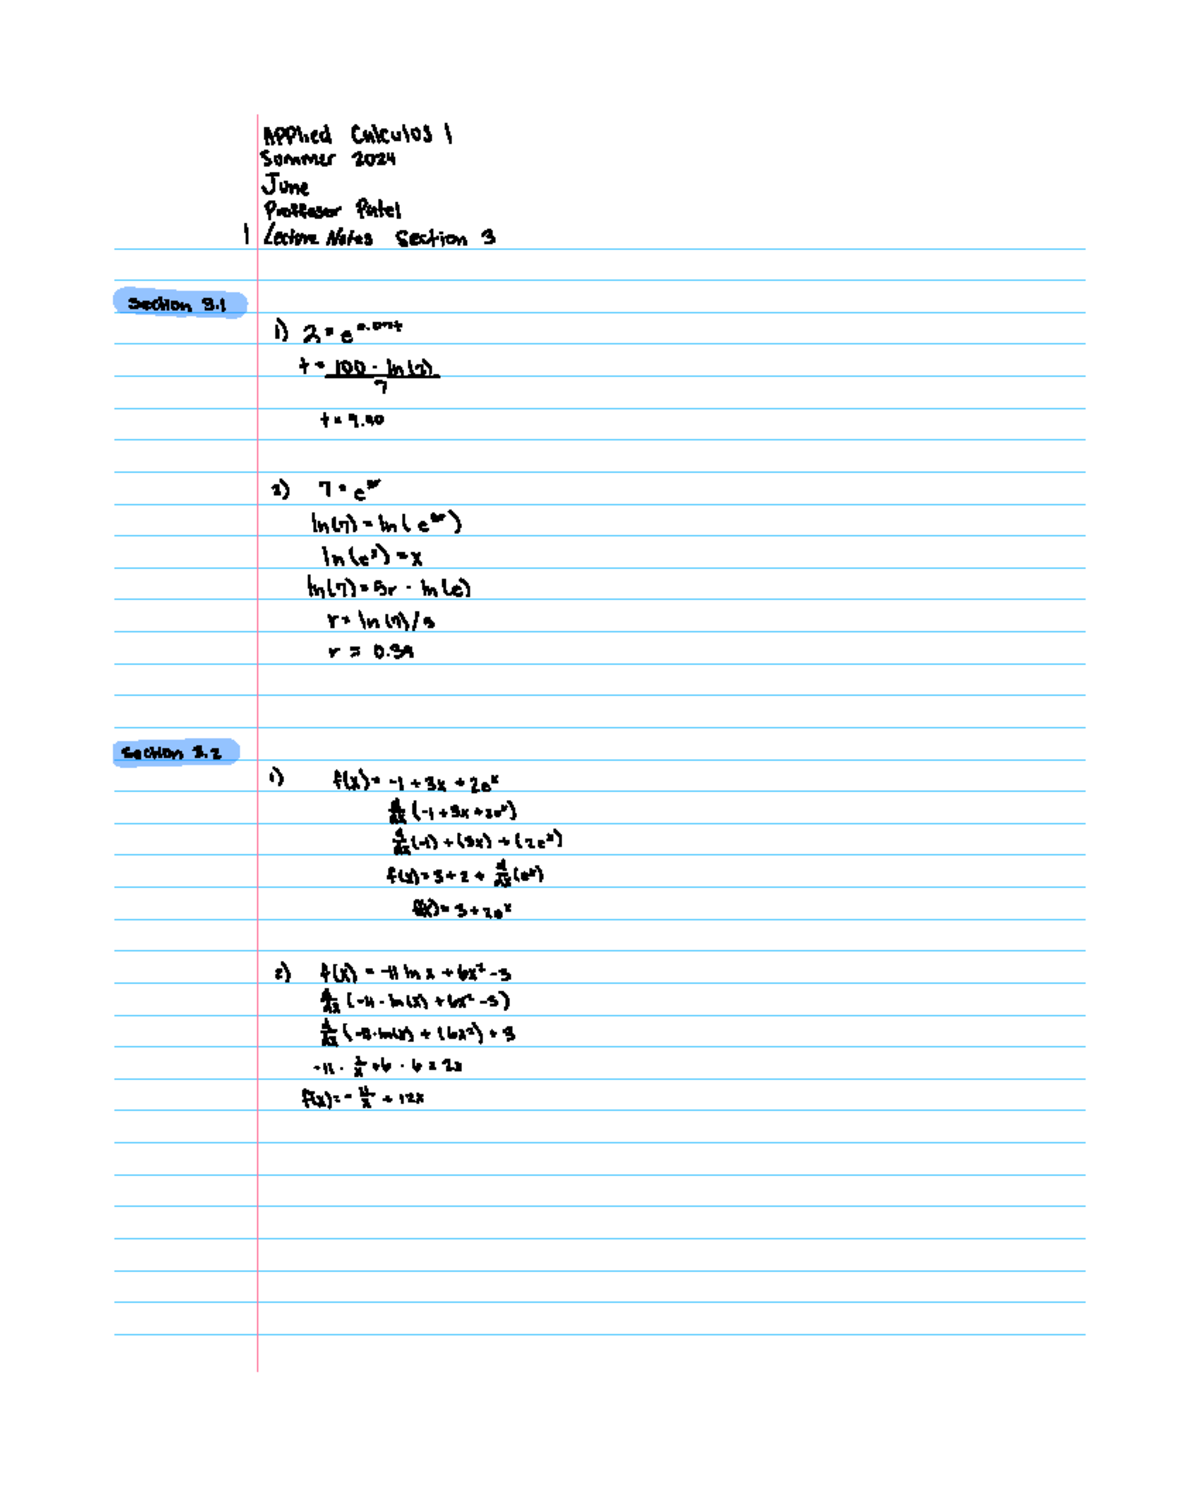 Applied Calculus 1
Summer 2024
June
Proffesor Patel
1 Lecture Notes Section 3
Section 3.1
1) 2 = e^0.07t
t = 100 · ln(2) / 7
t = 9.90
2) 7 = e^5r
ln(7) = ln(e^5r)
ln(e^x) = x
ln(7) = 5r · ln(e)
r = ln(7)/5
r = 0.39
Section 3.2
1) f(x) = -1 + 3x + 2e^x
d/dx (-1 + 3x + 2e^x)
d/dx (-1) + (3x) + (2e^x)
f(x) = 3 + 2 + d/dx (e^x)
f'(x) = 3 + 2e^x
2) f(x) = -11 ln x + 6x² - 3
d/dx (-11 · ln(x) + 6x² - 3)
d/dx (-11 · ln(x)) + (6x²) + 3
-11 · 1/x + 6 · 6 x 2x
f'(x) = - 11/x + 12x